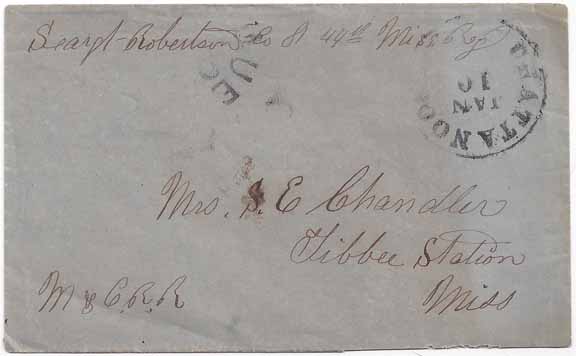 Seargt Robertson Co A 44th Miss Reg
DUE
CHATTANOOG
JAN
10
Mrs. S. E Chandler
Tibbee Station
Miss
M & C. R. R